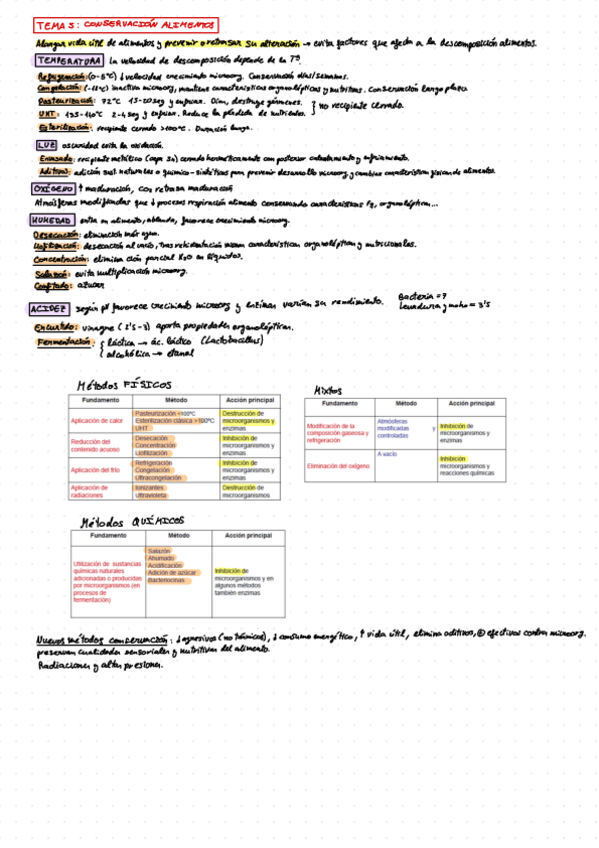 TEMA 5: CONSERVACIÓN ALIMENTOS
Alargar vida útil de alimentos y prevenir o retrasar su alteración → evita factores que afecta a la descomposición alimentos.
TEMPERATURA la velocidad de descomposición depende de la Tª.
Refrigeración: (0-5ºC) ↓ velocidad crecimiento microorg. Conservación días/semanas.
Congelación: inactiva microorg, mantiene características organolépticas y nutritivas. Conservación largo plazo
Pasteurización: 72ºC 15-20seg y enfriar. Días, destruye gérmenes.
UHT: 135-140ºC 2-4seg y enfriar. Reduce la pérdida de nutrientes.
} no recipiente cerrado.
Esterilización: recipiente cerrado >100ºC. Duración larga.
LUZ oscuridad evita la oxidación.
Envasado: recipiente metálico (capa Sn) cerrado herméticamente con posterior calentamiento y enfriamiento.
Aditivos: adición sust. naturales o químico-sintéticas para prevenir desarrollo microorg y cambios características físicas de alimentos.
OXÍGENO ↑ maduración, CO2 retrasa maduración
Atmósferas modificadas que ↓ procesos respiración alimento conservando características fq, organolépticas...
HUMEDAD entra en alimento, ablanda, favorece crecimiento microorg.
Desecación: eliminación agua.
Liofilización: desecación al vacío, tras rehidratación características organolépticas y nutricionales.
Concentración: eliminación parcial H2O en líquidos.
Salazón: evita multiplicación microorg.
Confitado: azúcar
ACIDEZ según pH favorece crecimiento microorg y enzimas varían su rendimiento.
Bacteria = 7
Levadura y moho = 3'5
Encurtido: vinagre (2'5-3) aporta propiedades organolépticas.
Fermentación: { láctica → ác. láctico (Lactobacillus)
alcohólica → etanol
Métodos FÍSICOS
Fundamento Método Acción principal
Aplicación de calor
Pasteurización <100ºC
Esterilización clásica >100ºC
UHT
Destrucción de
microorganismos y
enzimas
Reducción del
contenido acuoso
Desecación
Concentración
Liofilización
Inhibición de
microorganismos y
enzimas
Aplicación del frío
Refrigeración
Congelación
Ultracongelación
Inhibición de
microorganismos y
enzimas
Aplicación de
radiaciones
Ionizantes
Ultravioleta
Destrucción de
microorganismos
Mixtos
Fundamento Método Acción principal
Modificación de la
composición gaseosa y
refrigeración
Atmósferas
modificadas y
controladas
Inhibición de
microorganismos y
enzimas
Eliminación del oxígeno
A vacío
Inhibición
microorganismos y
reacciones químicas
Métodos QUÍMICOS
Fundamento Método Acción principal
Utilización de sustancias
químicas naturales
adicionadas o producidas
por microorganismos (en
procesos de
fermentación)
Salazón
Ahumado
Acidificación
Adición de azúcar
Bacteriocinas
Inhibición de
microorganismos y en
algunos métodos
también enzimas
Nuevos métodos conservación: ↓ agresivos (no térmicos), ↓ consumo energético, ↑ vida útil, elimina aditivos, ⊕ efectivos contra microorg.
preservan cualidades sensoriales y nutritivas del alimento.
Radiaciones y altas presiones.